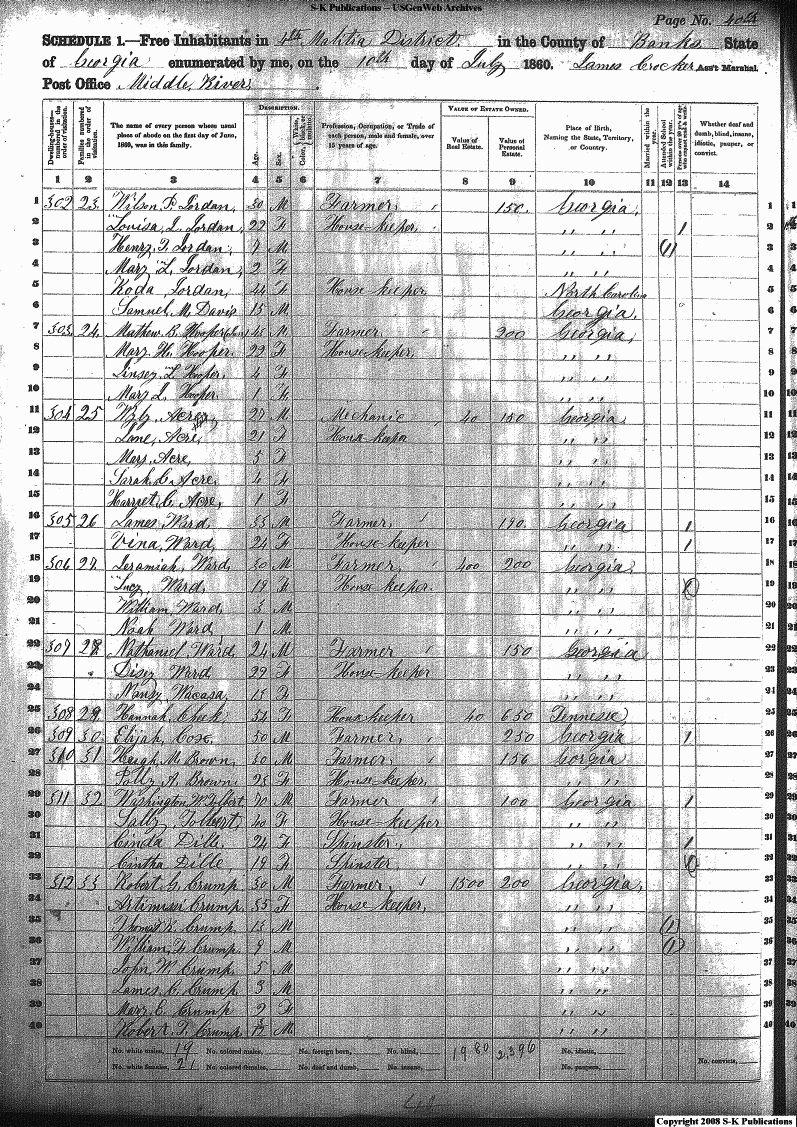 S-K Publications – USGenWeb Archives
Page No. 40th
SCHEDULE 1.—Free Inhabitants in 4th Malitia District in the County of Banks State
of Georgia enumerated by me, on the 10th day of July 1860. James Crocker Ass't Marshal.
Post Office Middle River
Dwelling-houses—numbered in the order of visitation.
Families numbered in the order of visitation.
The name of every person whose usual place of abode on the first day of June, 1860, was in this family.
DESCRIPTION.
Age.
Sex.
Color, White, black, or mulatto.
Profession, Occupation, or Trade of each person, male and female, over 15 years of age.
VALUE OF ESTATE OWNED.
Value of Real Estate.
Value of Personal Estate.
Place of Birth, Naming the State, Territory, or Country.
Married within the year.
Attended School within the year.
Whether deaf and dumb, blind, insane, idiotic, pauper, or convict.
1 2 3 4 5 6 7 8 9 10 11 12 13 14
1 302 23 Wilson P. Jordan, 30 M Farmer, 150 Georgia, 1
2 Louisa J. Jordan, 22 F House keeper, ,, ,, 1 2
3 Henry T. Jordan, M ,, ,, (1) 3
4 Mary L. Jordan, 2 F ,, ,, 4
5 Jordan, 44 F House keeper North Carolina 5
6 Samuel M. Davis 15 M Georgia, 6
7 303 24 Mathew B. Hooper M Farmer 200 Georgia, 7
8 Mary H. Hooper. 22 F House keeper, ,, ,, 8
9 Linsey L Hooper, 4 F ,, ,, 9
10 Mary L. Hooper 1 F ,, ,, 10
11 304 25 Acre, 27 M Mechanic 40 150 Georgia 11
12 Jane, Acre, 21 F House keeper ,, ,, 12
13 Mary, Acre, 5 F ,, ,, 13
14 Sarah C. Acre, 4 F ,, ,, 14
15 Harriet C. Acre, 1 F ,, ,, 15
16 305 26 James, Ward, 33 M Farmer, 190 Georgia 1 16
17 Vina, Ward, 24 F House keeper ,, ,, 1 17
18 306 27 Jeramiah, Ward 30 M Farmer, 400 200 Georgia, 18
19 Lucy, Ward, 19 F House keeper. ,, ,, (1) 19
20 William Ward, 3 M ,, ,, 20
21 Noah Ward, 1 M ,, ,, 21
22 307 28 Nathaniel Ward 24 M Farmer 150 Georgia 22
23 Disey Ward 22 F House keeper ,, ,, 23
24 Nancy F ,, ,, 24
25 308 29 Hannah, Cheek 54 F House keeper 40 650 Tennesie, 25
26 309 30 Elijah, Cox, 30 M Farmer, 250 Georgia 1 26
27 310 31 Heigh M. Brown, 30 M Farmer, 156 Gorgia 27
28 Polly A. Brown, 23 F House keeper, ,, ,, 28
29 311 32 Washington W. Tolbert M Farmer 100 Georgia 1 29
30 Sally, Tolbert, 40 F House keeper ,, ,, 30
31 Cinda Dille 24 F Spinster, ,, ,, 1 31
32 Cintha Dille 19 F Spinster, ,, ,, (1) 32
33 312 33 Robert G. Crump 30 M Farmer, 1500 200 Georgia, 33
34 Artimisei Crump. 35 F House keeper, ,, ,, 34
35 Thomas K. Crump. 13 M ,, ,, (1) 35
36 William H. Crump. 9 M ,, ,, (1) 36
37 John W. Crump. 5 M ,, ,, 37
38 James C. Crump 3 M ,, ,, 38
39 Mary E. Crump F ,, ,, 39
40 Robert T. Crump M. ,, ,, 40
No. white males, 19 No. colored males, No. foreign born, No. blind, 1980 2,396 No. idiotic,
No. white females, 21 No. colored females, No. deaf and dumb, No. insane, No. paupers, No. convicts,
Copyright 2008 S-K Publications